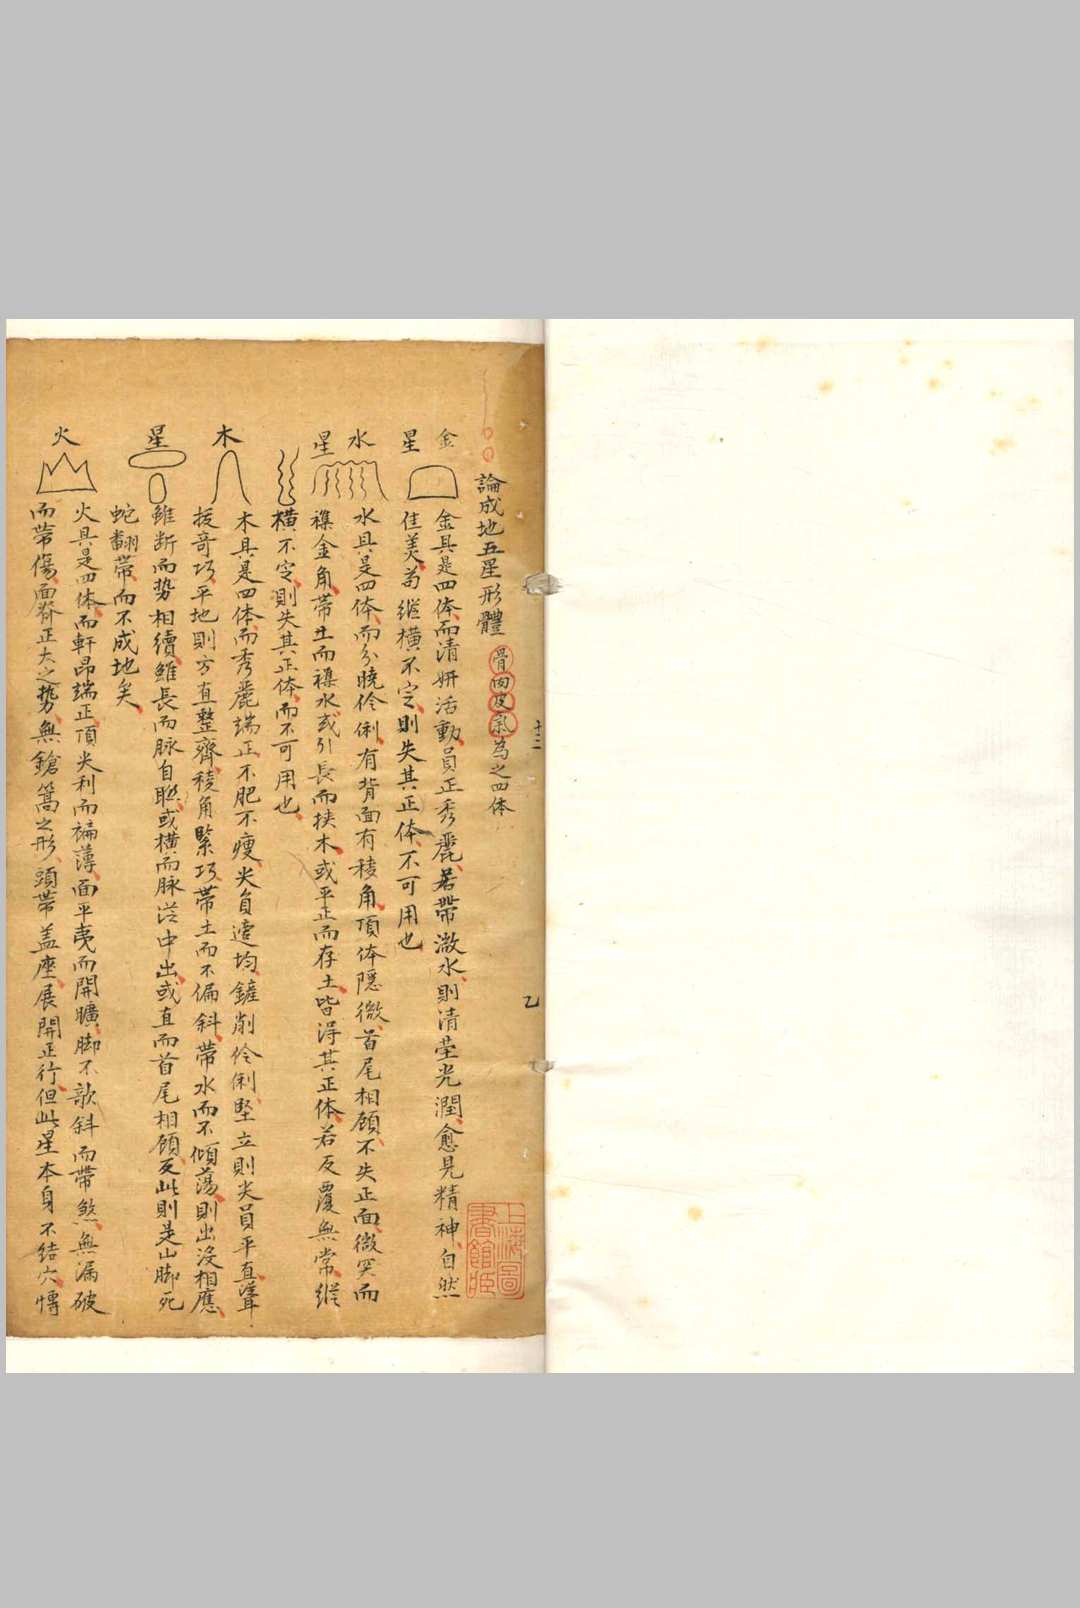 十二
乙
論成地五星形體 骨肉皮氣為之四体
上海圖
書館藏
金
金具是四体而清妍活動員正秀麗若帶激水則清瑩光潤愈見精神自然
星
佳美若縱横不定則失其正体不可用也
水
水具是四体而分曉伶俐有背面有稜角頂体隱微首尾相顧不失正面微突而
星
襍金角帶土而襍水或引長而挟木或平正而存土皆得其正体若反覆無常縱
横不定則失其正体而不可用也
木
木具是四体而秀麗端正不肥不瘦尖員遠均鏟削伶俐堅立則尖員平直聳
拔奇巧平地則方直整齊稜角緊巧帶土而不偏斜帶水而不傾蕩則出沒相應
星
雖断而势相續雖長而脉自聯或横而脉從中出或直而首尾相顧反此則是山脚死
蛇翻帶而不成地矣
火
火具是四体而軒昂端正頂尖利而褊薄面平夷而開曠脚不歆斜而帶煞無漏破
而帶傷面脊正大之势無鎗篙之形頭帶盖座展開正行但此星本身不結穴慱